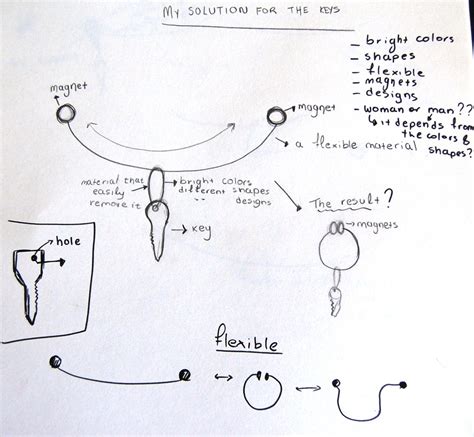 My SOLUTION FOR THE KEYS
- bright colors
- shapes
- flexible
- magnets
- designs
- woman or man ??
it depends from
the colors &
shapes?
magnet
magnet
a flexible material
material that
easily
remove it
bright colors
different shapes
" " designs
key
The result?
magnets
hole
flexible